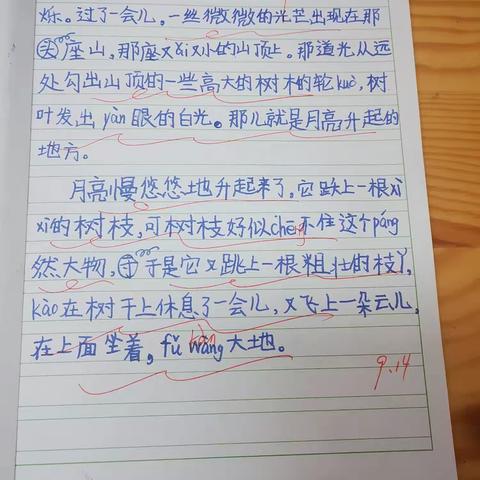 烁。过了一会儿，一丝微微的光芒出现在那
座山，那座又ǎi又小的山顶上。那道光从远
处勾出山顶的一些高大的树木的轮kuò，树
叶发出yàn眼的白光。那儿就是月亮升起的
地方。
月亮慢悠悠地升起来了，它跃上一根xì
xì的树枝，可树枝好似chēng不住这个páng
然大物，于是它又跳上一根粗壮的枝丫，
kào在树干上休息了一会儿，又飞上一朵云儿，
在上面坐着，fǔ wàng大地。
9.14